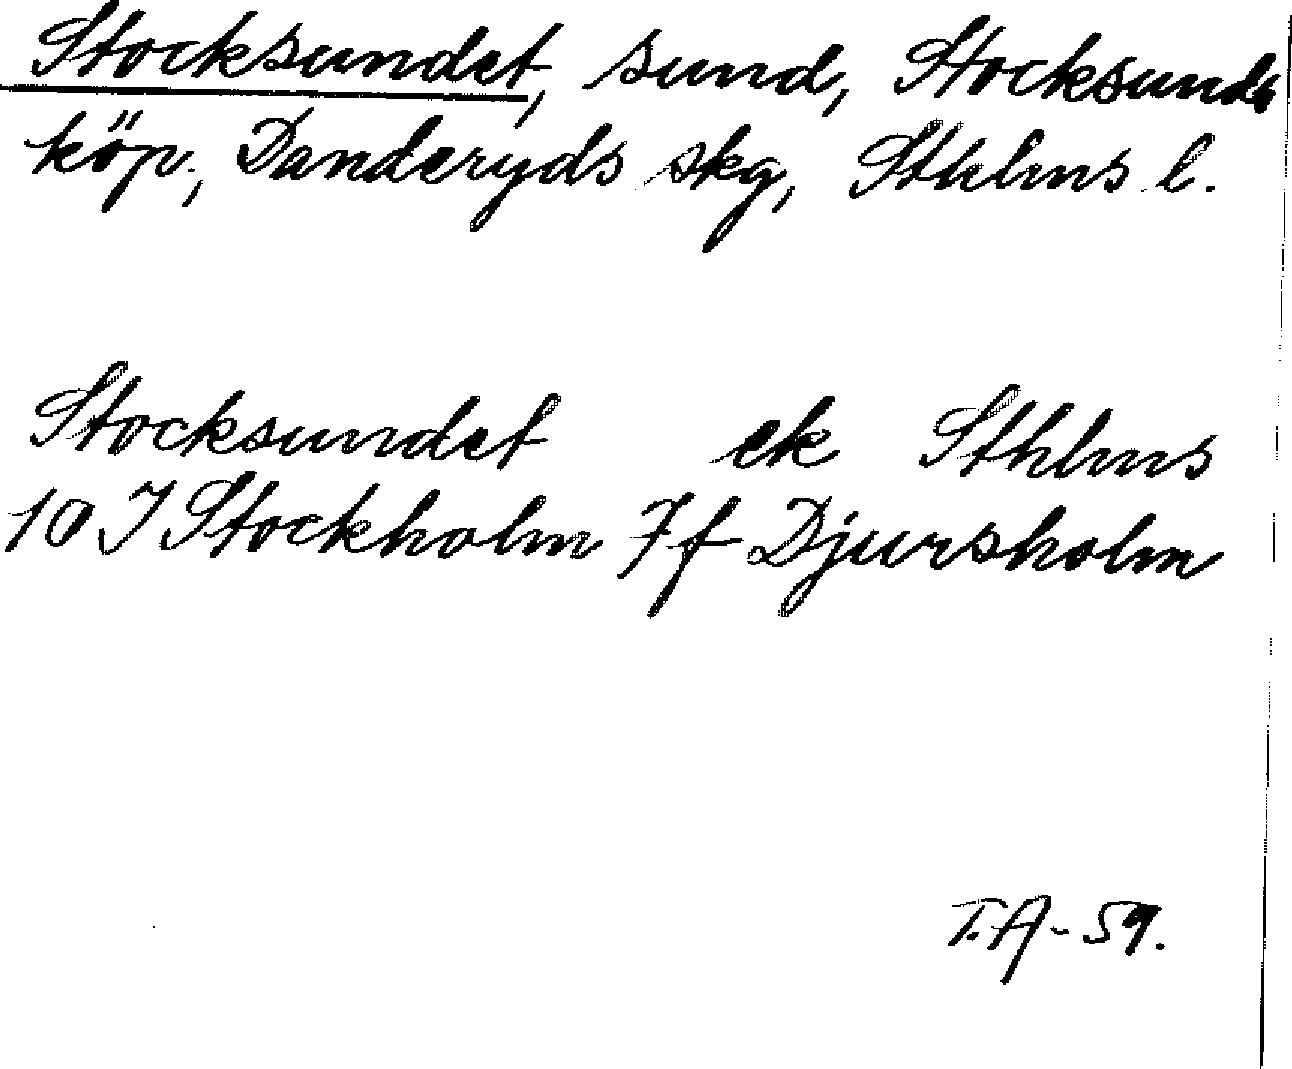 Stocksundet, sund, Stocksunds
köp., Danderyds skg, Sthlms l.
Stocksundet ek Sthlms
10 I Stockholm 7f Djursholm
T.A-59.